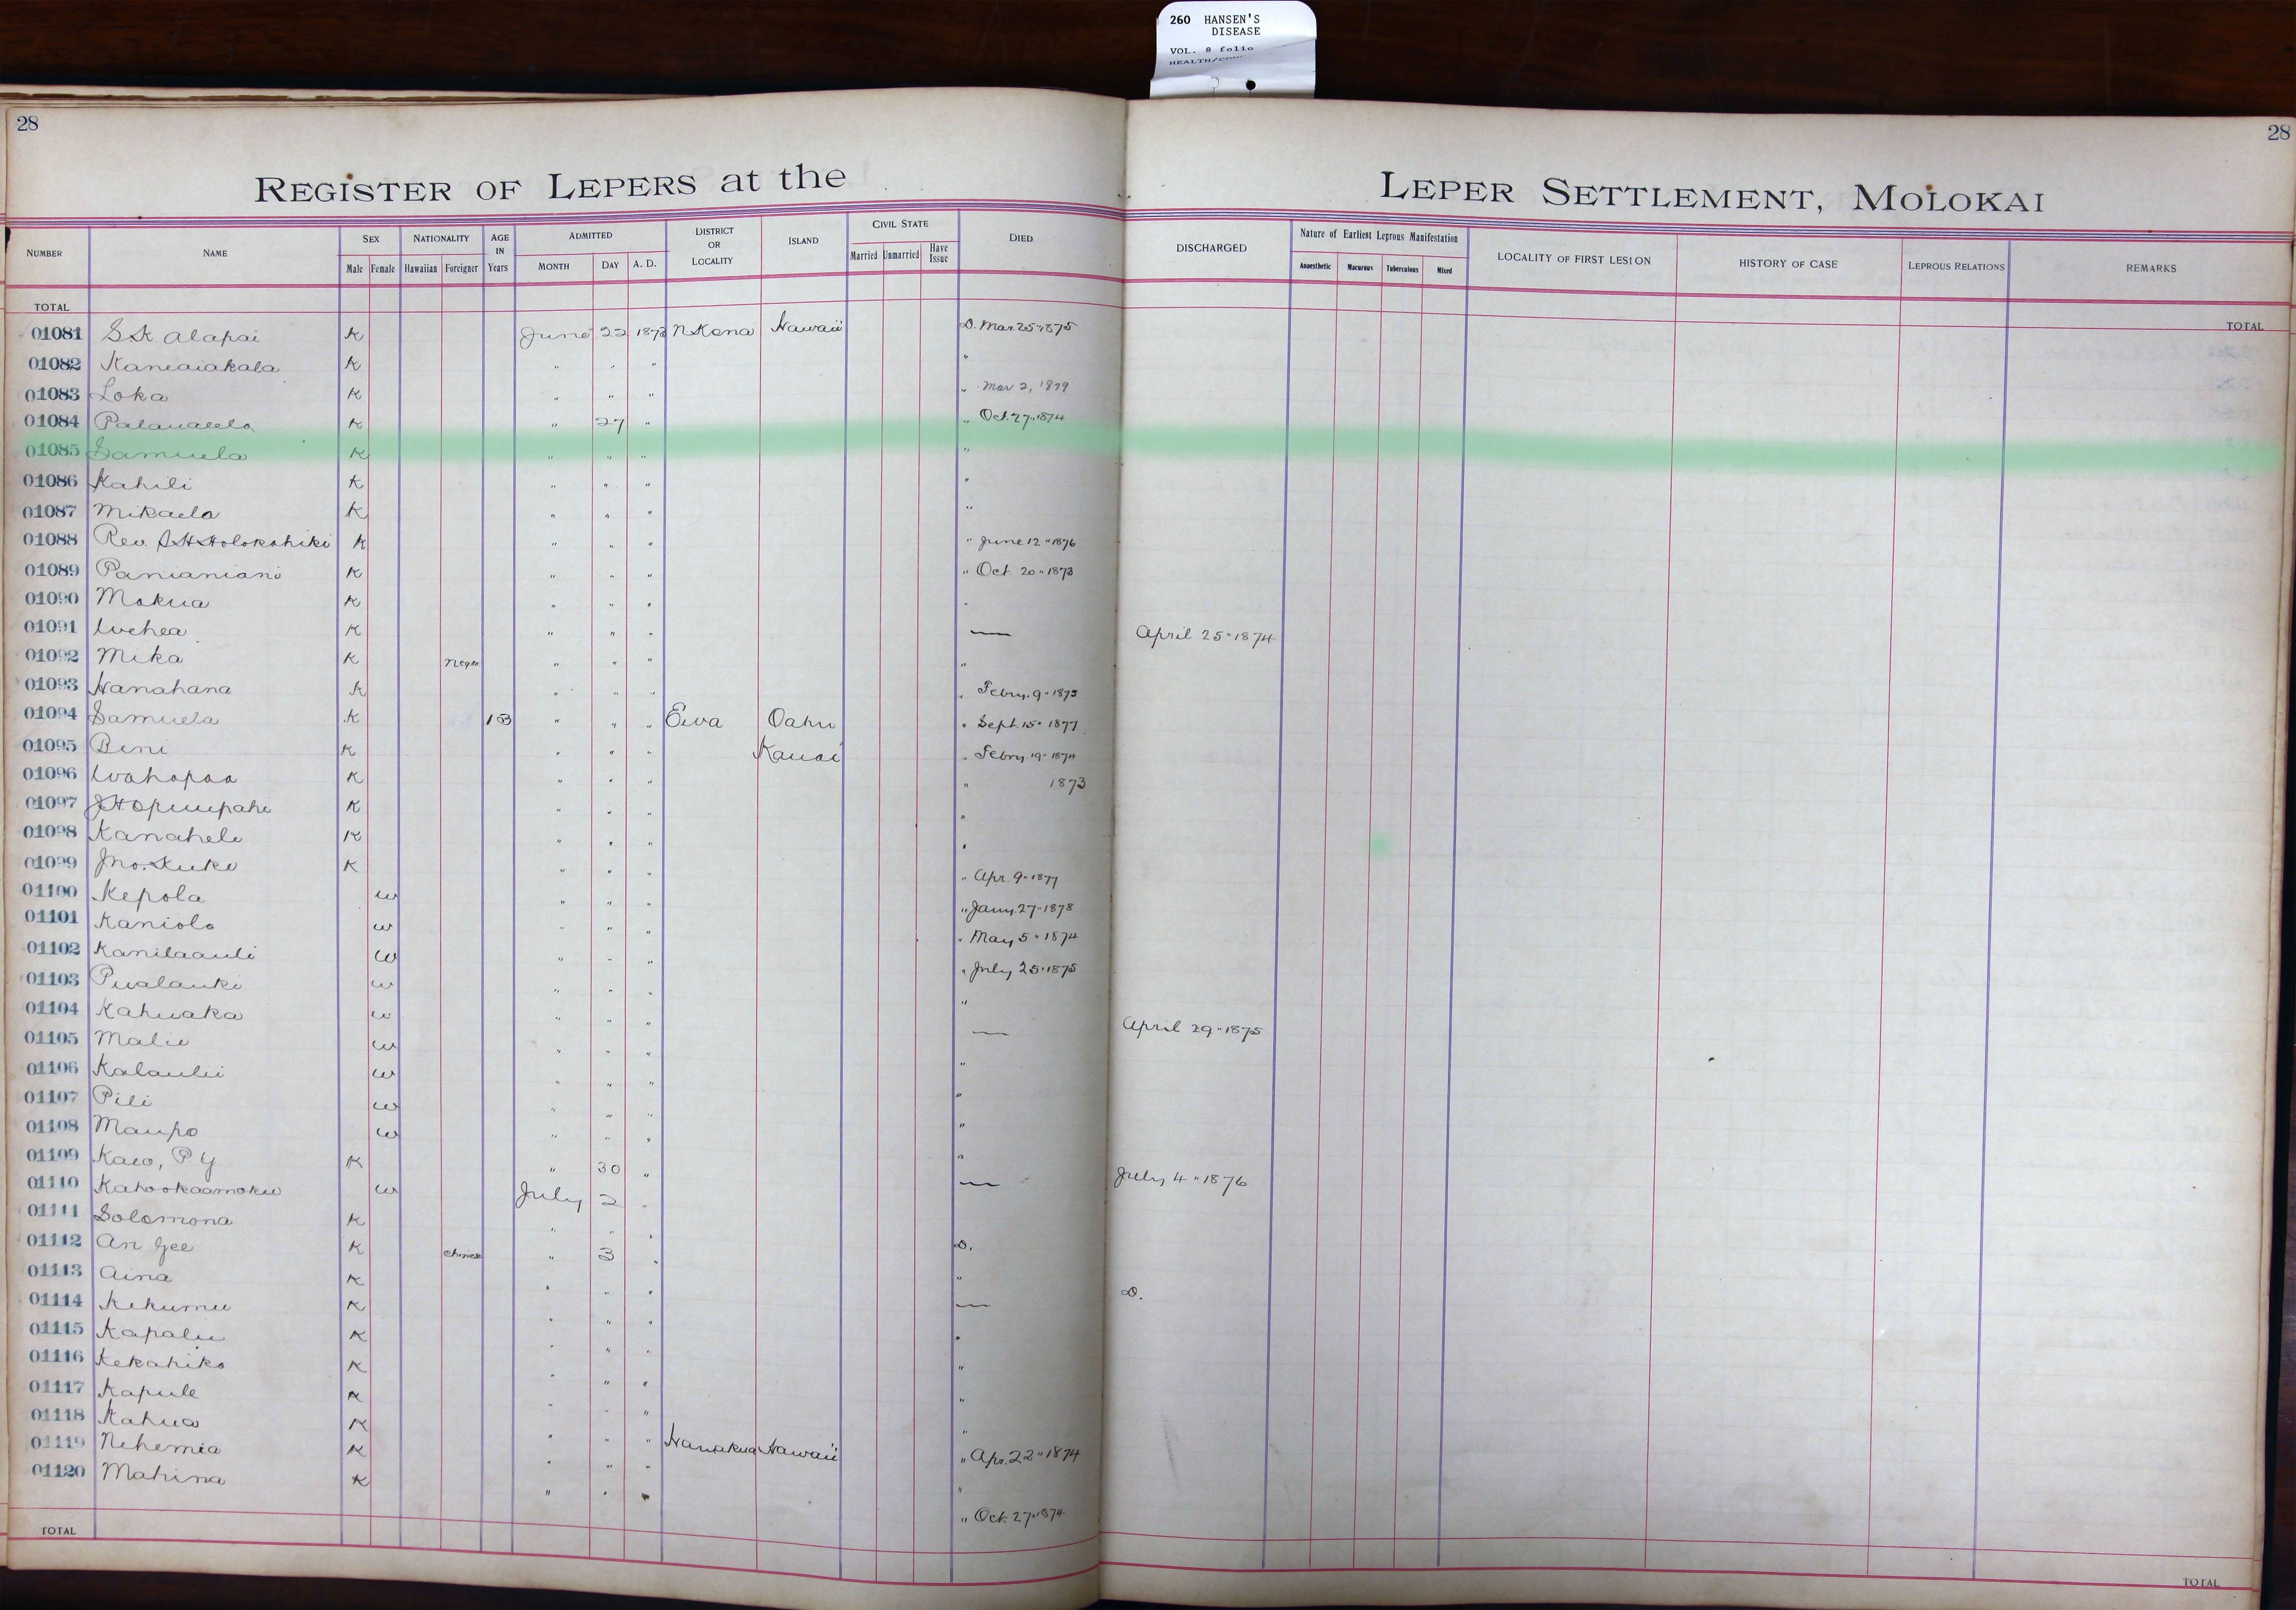 260 HANSEN'S
DISEASE
VOL. 8 folio
28
28
REGISTER OF LEPERS at the LEPER SETTLEMENT, MOLOKAI
NUMBER NAME SEX Male Female NATIONALITY Hawaiian Foreigner AGE IN Years ADMITTED MONTH DAY A. D. DISTRICT OR LOCALITY ISLAND CIVIL STATE Married Unmarried Have Issue DIED DISCHARGED Nature of Earliest Leprous Manifestation Anaesthetic Macurous Tuberculous Mixed LOCALITY OF FIRST LESION HISTORY OF CASE LEPROUS RELATIONS REMARKS
TOTAL TOTAL
01081 S.K. Alapai K June 22 1873 N Kona Hawaii D. Mar. 25 " 1875
01082 Kaneaiakala K " " " "
01083 Loka K " " " " Mar 2, 1879
01084 K " 27 " " Oct. 27 " 1874
01085 Samuela K " " " "
01086 Kahili K " " " "
01087 Mikaela K " " " "
01088 Rev. Holokahiki K " " " " June 12 " 1876
01089 Panianiani K " " " " Oct. 20 " 1873
01090 Mokua K " " " "
01091 Wehea K " " " — April 25 " 1874
01092 Mika K Negro " " " "
01093 Hanahana K " " " " Febry. 9 " 1875
01094 Samuela K 13 " " " Ewa Oahu " Sept. 15 " 1877
01095 Beni K " " " Kauai " Febry 19 " 1874
01096 Wahapaa K " " " " 1873
01097 J.H. Opiuupahi K " " " "
01098 Kanahele K " " " "
01099 Jno. Kuke K " " " " Apr. 9 " 1877
01100 Kepola w " " " " Jany. 27 " 1878
01101 Kaniolo w " " " " May 5 " 1874
01102 Kanilaauli w " " " " July 25 " 1875
01103 Pualauki w " " " "
01104 Kahuaka w " " " — April 29 " 1875
01105 Malie w " " " "
01106 Kalaulii w " " " "
01107 Pili w " " " "
01108 Maupo w " " " "
01109 Kaeo, P Y K " 30 " — July 4 " 1876
01110 Kahookaamoku w July 2 "
01111 Solomona K " " "
01112 An Gee K Chinese " 3 " D.
01113 Aina K " " " "
01114 Kekumu K " " " — D.
01115 Kapalu K " " " "
01116 Kekahiko K " " " "
01117 Kapule K " " " "
01118 Kahua K " " " "
01119 Nehemia K " " " Hamakua Hawaii " Apr. 22 " 1874
01120 Mahina K " " " "
" Oct. 27 " 1874
TOTAL TOTAL